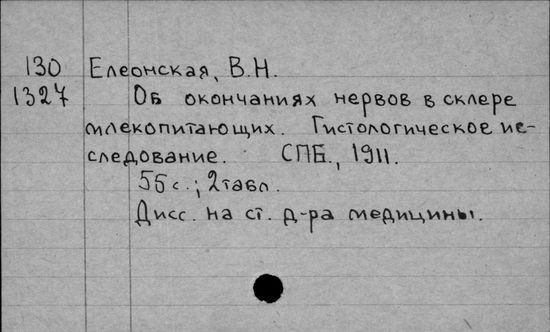 130 Елеонская, В.Н.
1327 Об окончаниях нервов в склере
млекопитающих. Гистологическое ис-
следование. СПБ., 1911.
55 с.; 2 табл.
Дисс. на ст. д-ра медицины.